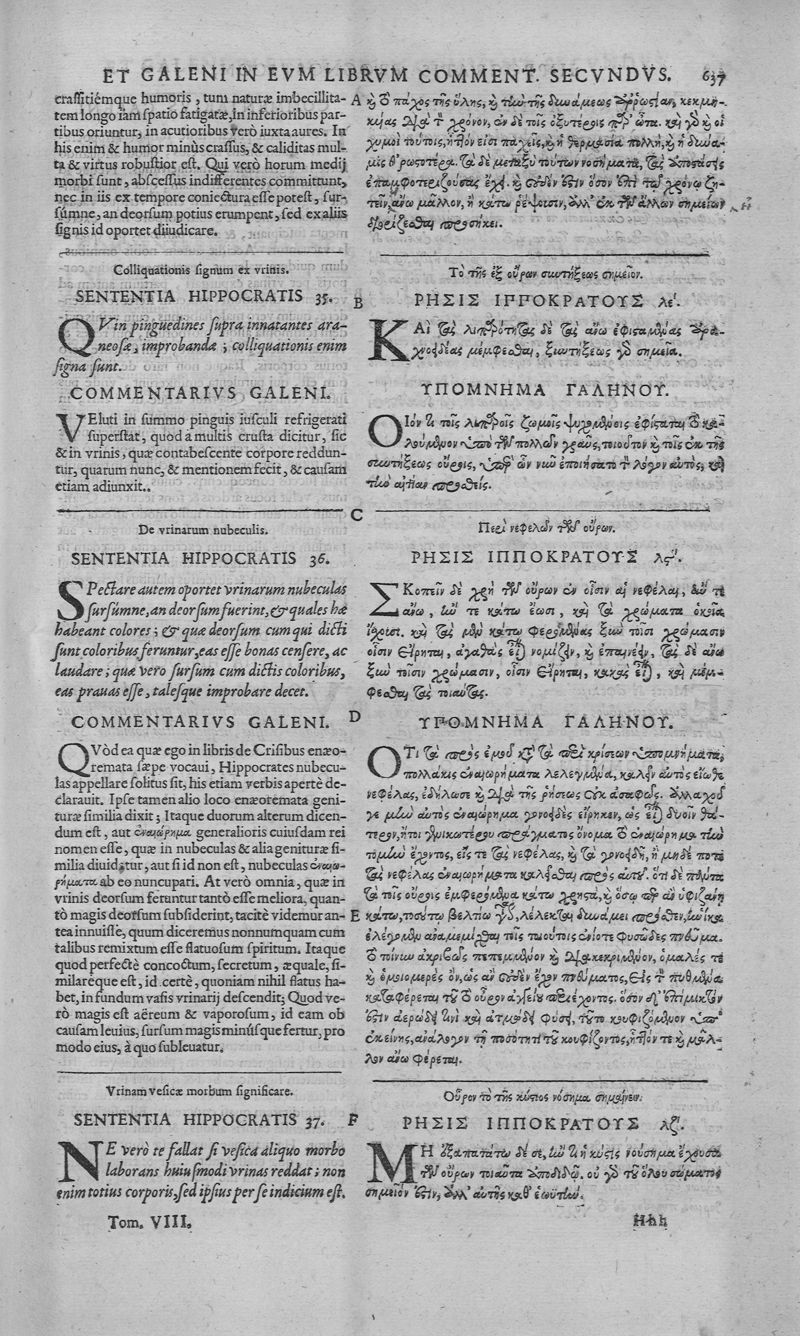 ET GALENI IN EVM LIBRVM COMMENT. SECVNDVS. 637
crassitiémque humoris, tum naturæ imbecillita-
tem longo iam spatio fatigatæ, in inferioribus par-
tibus oriuntur, in acutioribus verò iuxta aures. In
his enim & humor minùs crassus, & caliditas mul-
ta & virtus robustior est. Qui verò horum medij
morbi sunt, abscessus indifferentes committunt,
nec in iis ex tempore coniectura esse potest, sur-
súmne, an deorsum potius erumpent, sed ex aliis
signis id oportet diiudicare.
Colliquationis signum ex vrinis.
SENTENTIA HIPPOCRATIS 35.
QVin pinguedines supra innatantes ara-
neosæ, improbandæ; colliquationis enim
signa sunt.
COMMENTARIVS GALENI.
VEluti in summo pinguis iusculi refrigerati
superstat, quod a multis crusta dicitur, sic
& in vrinis, quæ contabescente corpore reddun-
tur, quarum nunc, & mentionem fecit, & causam
etiam adiunxit..
De vrinarum nubeculis.
SENTENTIA HIPPOCRATIS 36.
SPectare autem oportet vrinarum nubeculas
sursúmne, an deorsum fuerint, & quales hæ
habeant colores; & quæ deorsum cum qui dicti
sunt coloribus feruntur, eas esse bonas censere, ac
laudare; quæ vero sursum cum dictis coloribus,
eas prauas esse, talesque improbare decet.
COMMENTARIVS GALENI.
QVòd ea quæ ego in libris de Crisibus enæo-
remata sæpe vocaui, Hippocrates nubecu-
las appellare solitus sit, his etiam verbis apertè de-
clarauit. Ipse tamen alio loco enæoremata geni-
turæ similia dixit; Itaque duorum alterum dicen-
dum est, aut ἐναιώρημα generalioris cuiusdam rei
nomen esse, quæ in nubeculas & alia genituræ si-
milia diuidatur, aut si id non est, nubeculas ἐναιω-
ρήματα ab eo nuncupari. At verò omnia, quæ in
vrinis deorsum feruntur tantò esse meliora, quan-
tò magis deorsum subsiderint, tacitè videmur an-
tea innuisse, quum diceremus nonnumquam cum
talibus remixtum esse flatuosum spiritum. Itaque
quod perfectè concoctum, secretum, æquale, si-
milareque est, id certè, quoniam nihil flatus ha-
bet, in fundum vasis vrinarij descendit; Quod ve-
rò magis est aëreum & vaporosum, id eam ob
causam leuius, sursum magis minúsque fertur, pro
modo eius, à quo subleuatur.
Vrinam vesicæ morbum significare.
SENTENTIA HIPPOCRATIS 37.
NE verò te fallat si vesica aliquo morbo
laborans huiusmodi vrinas reddat; non
enim totius corporis, sed ipsius per se indicium est.
Tom. VIII.
A
B
C
D
E
F
καὶ τὸ πάχος τῆς ὕλης, καὶ τὴν τῆς δυνάμεως ἀρρωστίαν, κεκμη-
κυίας διὰ τὸν χρόνον, ἐν δὲ τοῖς ὀξυτέροις παρ' ὦτα. καὶ γὰρ καὶ οἱ
χυμοὶ τούτοις, ἧττόν εἰσι παχεῖς, καὶ ἡ θερμασία πολλὴ, καὶ ἡ δύνα-
μις εὐρωστοτέρα. τὰ δὲ μεταξὺ τούτων νοσήματα, τὰς ἀποστάσεις
ἐπαμφοτεριζούσας ἔχει. καὶ οὐδέν ἐστιν ὅσον ἐπὶ τῷ χρόνῳ ζη-
τεῖν, ἄνω μᾶλλον, ἢ κάτω ῥέψουσιν, ἀλλ' ἐκ τῶν ἄλλων σημείων
διορίζεσθαι προσήκει.
Τὸ τῆς ἐξ οὔρων συντήξεως σημεῖον.
ΡΗΣΙΣ ΙΠΠΟΚΡΑΤΟΥΣ λε'.
ΚΑὶ τὰς λιπαρότητας δὲ τὰς ἄνω ἐφισταμένας ἀρα-
χνοειδέας μέμφεσθαι, ξυντήξεως γὰρ σημεῖα.
ΥΠΟΜΝΗΜΑ ΓΑΛΗΝΟΥ.
ΟἷΟν τι τοῖς λιπαροῖς ζωμοῖς ψυχομένοις ἐφίσταται τὸ κα-
λούμενον ὑπὸ τῶν πολλῶν γραῦς, τοιοῦτον καὶ τοῖς ἐκ τῆς
συντήξεως οὔροις, ὑπὲρ ὧν νῦν ἐποιήσατο τὸν λόγον αὐτὸς, καὶ
τὴν αἰτίαν προσθείς.
Περὶ νεφελῶν τῶν οὔρων.
ΡΗΣΙΣ ΙΠΠΟΚΡΑΤΟΥΣ λϛ'.
ΣΚοπεῖν δὲ χρὴ τῶν οὔρων ἐν οἷσιν αἱ νεφέλαι, ἤν τε
ἄνω, ἤν τε κάτω ἔωσι, καὶ τὰ χρώματα ὁκοῖα
ἴσχουσι. καὶ τὰς μὲν κάτω φερομένας ξὺν τοῖσι χρώμασιν
οἷσιν εἴρηται, ἀγαθὰς εἶναι νομίζειν, καὶ ἐπαινεῖν, τὰς δὲ ἄνω
ξὺν τοῖσιν χρώμασιν, οἷσιν εἴρηται, κακὰς εἶναι, καὶ μέμ-
φεσθαι τὰς τοιαύτας.
ΥΠΟΜΝΗΜΑ ΓΑΛΗΝΟΥ.
ΟΤι τὰ πρὸς ἐμοῦ κατὰ τὰ περὶ κρίσεων ὑπομνήματα,
πολλάκις ἐναιωρήματα λελεγμένα, καλεῖν αὐτὸς εἴωθε
νεφέλας, ἐδήλωσε καὶ διὰ τῆς ῥήσεως οὐκ ἀσαφῶς. ἀλλαχοῦ
γε μὴν αὐτὸς ἐναιώρημα γονοειδὲς εἴρηκεν, ὡς εἶναι δυοῖν θά-
τερον, ἤτοι γενικωτέρου πράγματος ὄνομα τὸ ἐναιώρημα τὴν
τομὴν ἔχοντος, εἴς τε τὰς νεφέλας, καὶ τὰ γονοειδῆ, ἢ μηδέ ποτε
τὰς νεφέλας ἐναιωρήματα καλεῖσθαι πρὸς αὐτοῦ. ὅτι δὲ πάντα
τὰ τοῖς οὔροις ἐμφερόμενα κάτω χρηστὰ, καὶ ὅσῳ περ ἂν ὑφιζάνῃ
κάτω, τοσούτῳ βελτίω γε, λέλεκται δυνάμει πρόσθεν, ἡνίκα
ἐλέγομεν ἀναμεμίχθαι τοῖς τοιούτοις ἐνίοτε φυσῶδες πνεῦμα.
τὸ τοίνυν ἀκριβῶς πεπεμμένον καὶ διακεκριμένον, ὁμαλές τε
καὶ ὁμοιομερὲς ὂν, ὡς ἂν οὐδὲν ἔχον πνεύματος, εἰς τὸν πυθμένα
καταφέρεται τοῦ τὸ οὖρον ἀγγείου περιέχοντος. ὅσον δ' ἐπιμικτόν
ἐστιν ἀερώδει τινὶ καὶ ἀτμώδει φύσῃ, τοῦτο κουφιζόμενον ὑπ'
ἐκείνης, ἀνάλογον τῇ ποσότητι τοῦ κουφίζοντος, ἧττόν τε καὶ μᾶλ-
λον ἄνω φέρεται.
Οὖρον τὸ τῆς κύστιος νόσημα σημαίνειν.
ΡΗΣΙΣ ΙΠΠΟΚΡΑΤΟΥΣ λζ'.
ΜΗ ἐξαπατάτω δέ σε, ἢν τι ἡ κύστις νούσημα ἔχουσα
τῶν οὔρων τοιαῦτα ἀποδιδῷ. οὐ γὰρ τοῦ ὅλου σώματος
σημεῖόν ἐστιν, ἀλλ' αὐτῆς καθ' ἑωυτήν.
Hhh